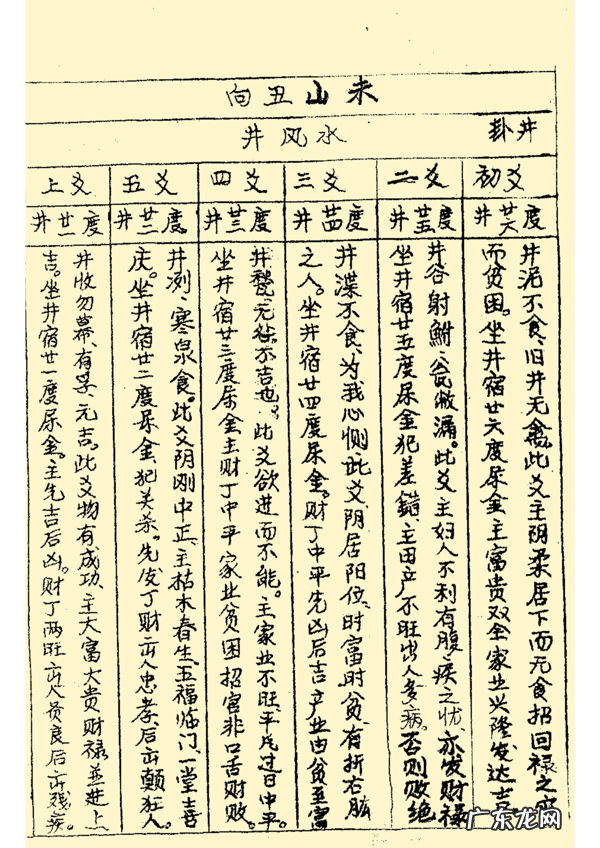 未山丑向
井卦
水风井
初爻
二爻
三爻
四爻
五爻
上爻
井廿六度
井廿五度
井廿四度
井廿三度
井廿二度
井廿一度
井泥不食、旧井无禽。此爻主阴柔居下而无食招回禄之
而贫困。坐井宿廿六度尿金主富贵双全家业兴隆发达吉
井谷射鲋、瓮敝漏。此爻主妇人不利有腹疾之忧、亦发财禄
坐井宿廿五度尿金犯差錯主田产不旺出人多病。否则败绝
井渫不食、为我心恻。此爻阴居阳位、时富时贫、有折右肱
之人。坐井宿廿四度尿金。财丁中平先凶后吉产业由贫至富
井甃、无咎。不吉也。此爻欲进而不能。主家业不旺、平凡过日中平。
坐井宿廿三度尿金主财丁中平家业贫困招官非口舌财败。
井洌、寒泉食。此爻阴刚中正、主枯木春生、五福临门、一堂吉
庆。坐井宿廿二度尿金犯关杀。先发丁财出人忠孝、后出颠狂人。
井收勿幕、有孚、元吉。此爻物有成功、主大富大贵财禄並进上
吉。坐井宿廿一度尿金。主先吉后凶。财丁两旺出人贤良后出残疾。
广东龙网